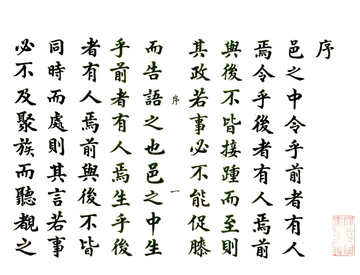 序
邑之中令乎前者有人
焉令乎後者有人焉前
與後不皆接踵而至則
其政若事必不能促膝
序 一
而告語之也邑之中生
乎前者有人焉生乎後
者有人焉前與後不皆
同時而處則其言若事
必不及聚族而聽覩之